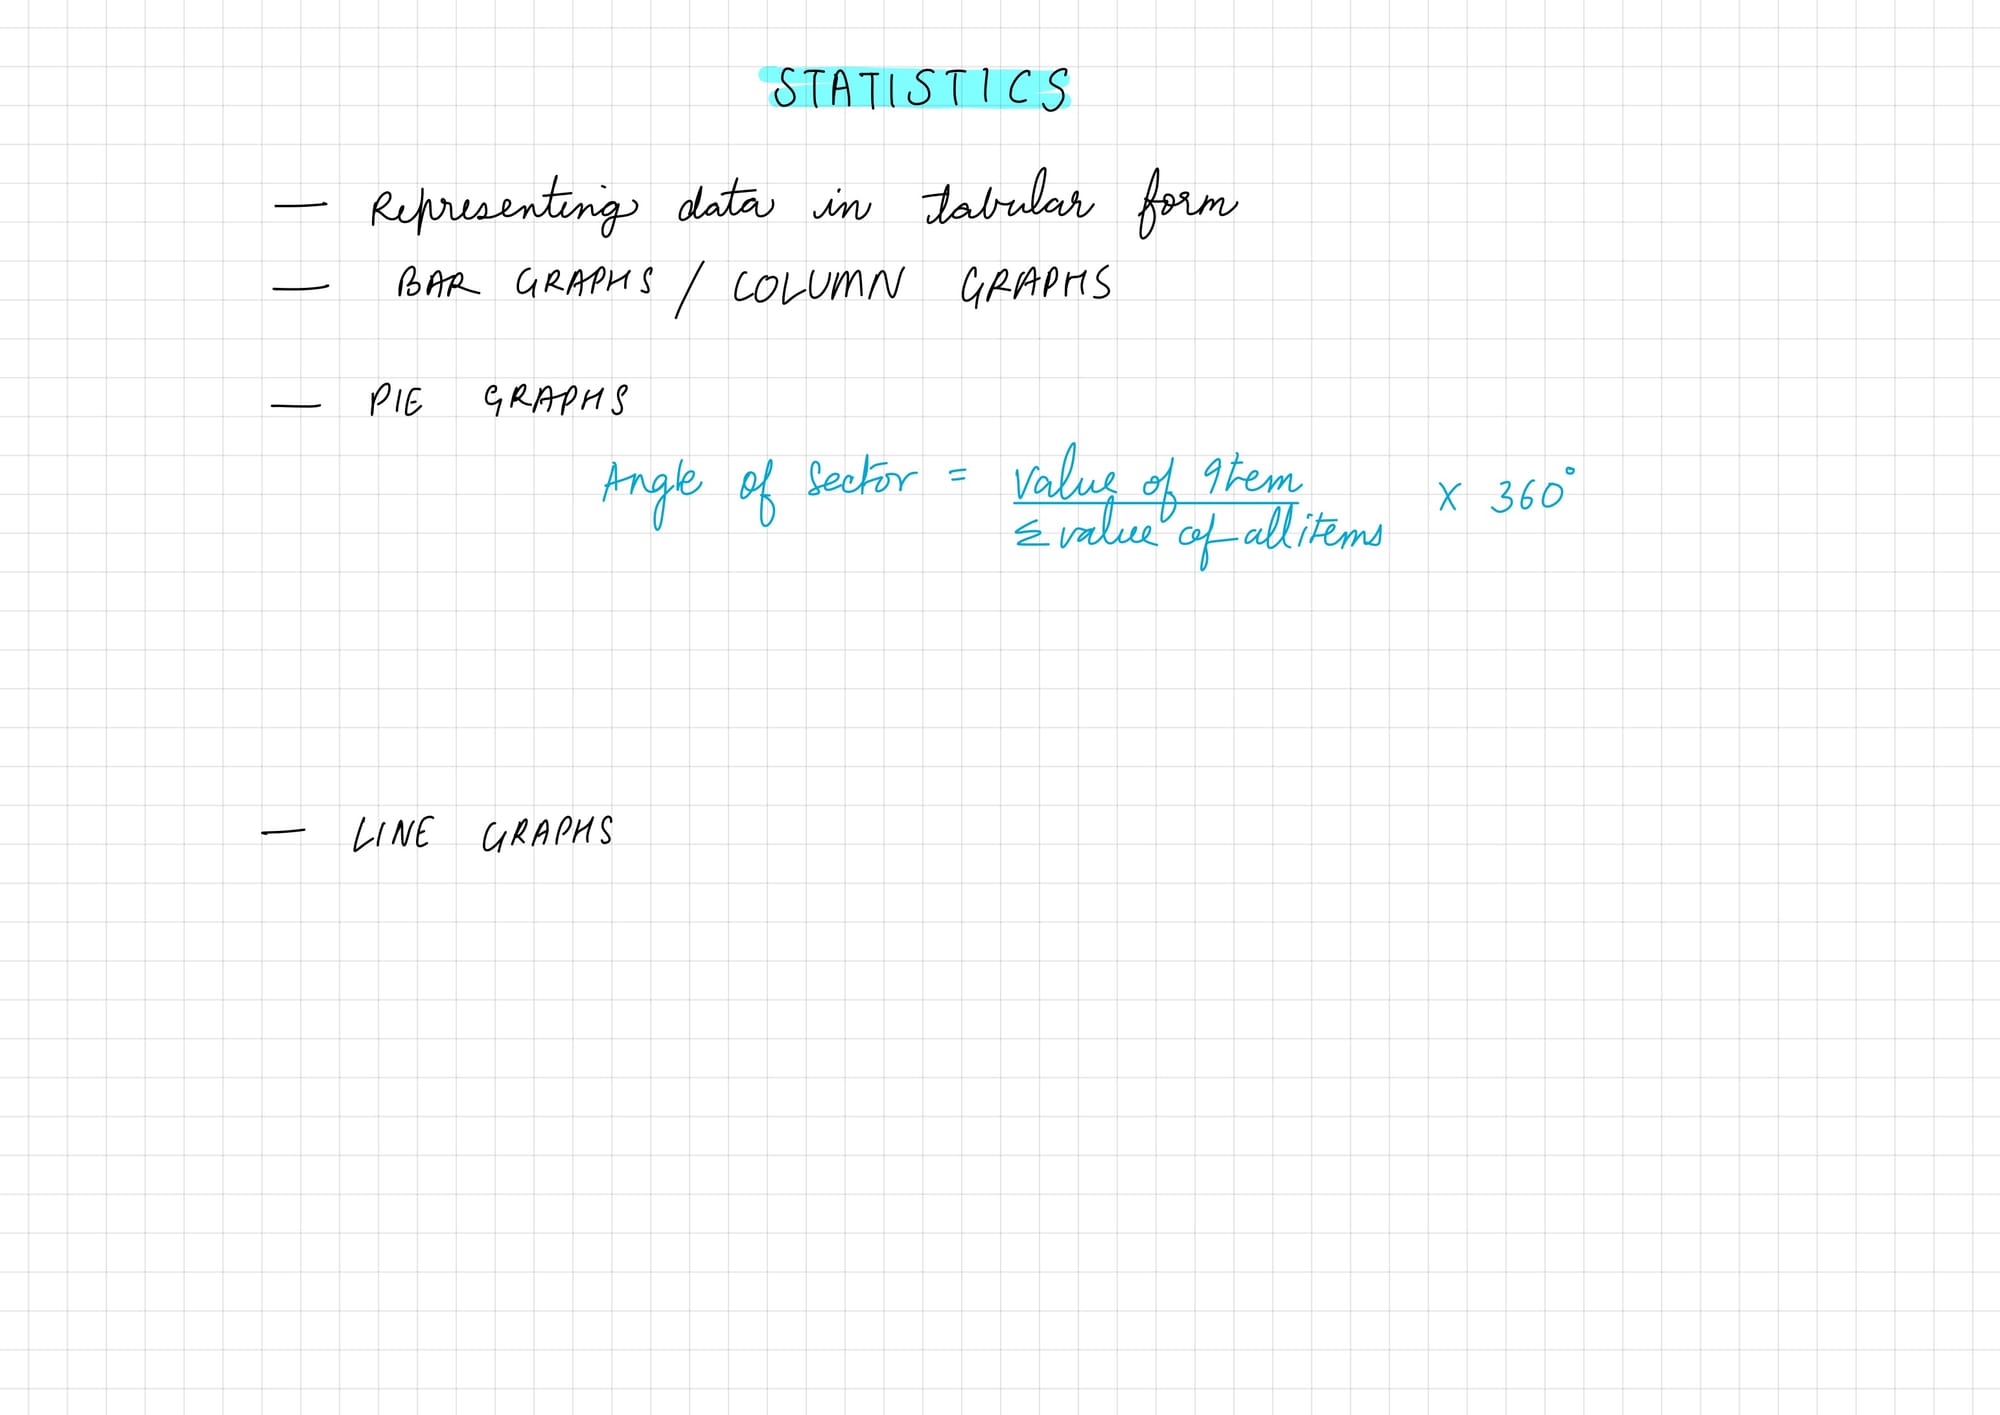 STATISTICS
— Representing data in tabular form
— BAR GRAPHS / COLUMN GRAPHS
— PIE GRAPHS
Angle of Sector = value of Item / Σ value of all items × 360°
— LINE GRAPHS